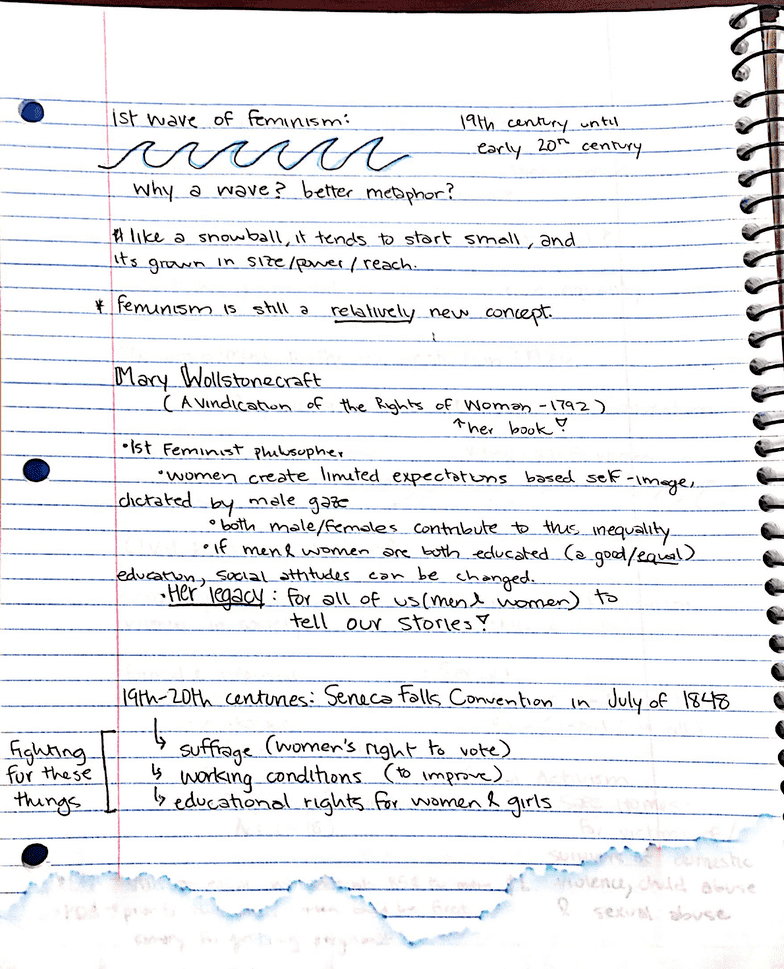 1st wave of feminism:
19th century until
early 20th century
Why a wave? better metaphor?
* like a snowball, it tends to start small, and
its grown in size/power/reach.
* feminism is still a relatively new concept.
Mary Wollstonecraft
(A Vindication of the Rights of Woman - 1792)
↑her book!
•1st Feminist philosopher
•women create limited expectations based self-image,
dictated by male gaze
•both male/females contribute to this inequality
•if men & women are both educated (a good/equal)
education, social attitudes can be changed.
•Her legacy: for all of us (men & women) to
tell our stories!
19th-20th centuries: Seneca Falls Convention in July of 1848
Fighting
for these
things
↳ suffrage (women's right to vote)
↳ working conditions (to improve)
↳ educational rights for women & girls
domestic
violence, child abuse
& sexual abuse